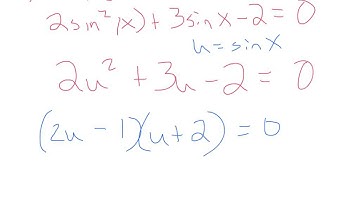 2sin²(x) + 3sinx - 2 = 0
u = sinx
2u² + 3u - 2 = 0
(2u - 1)(u + 2) = 0